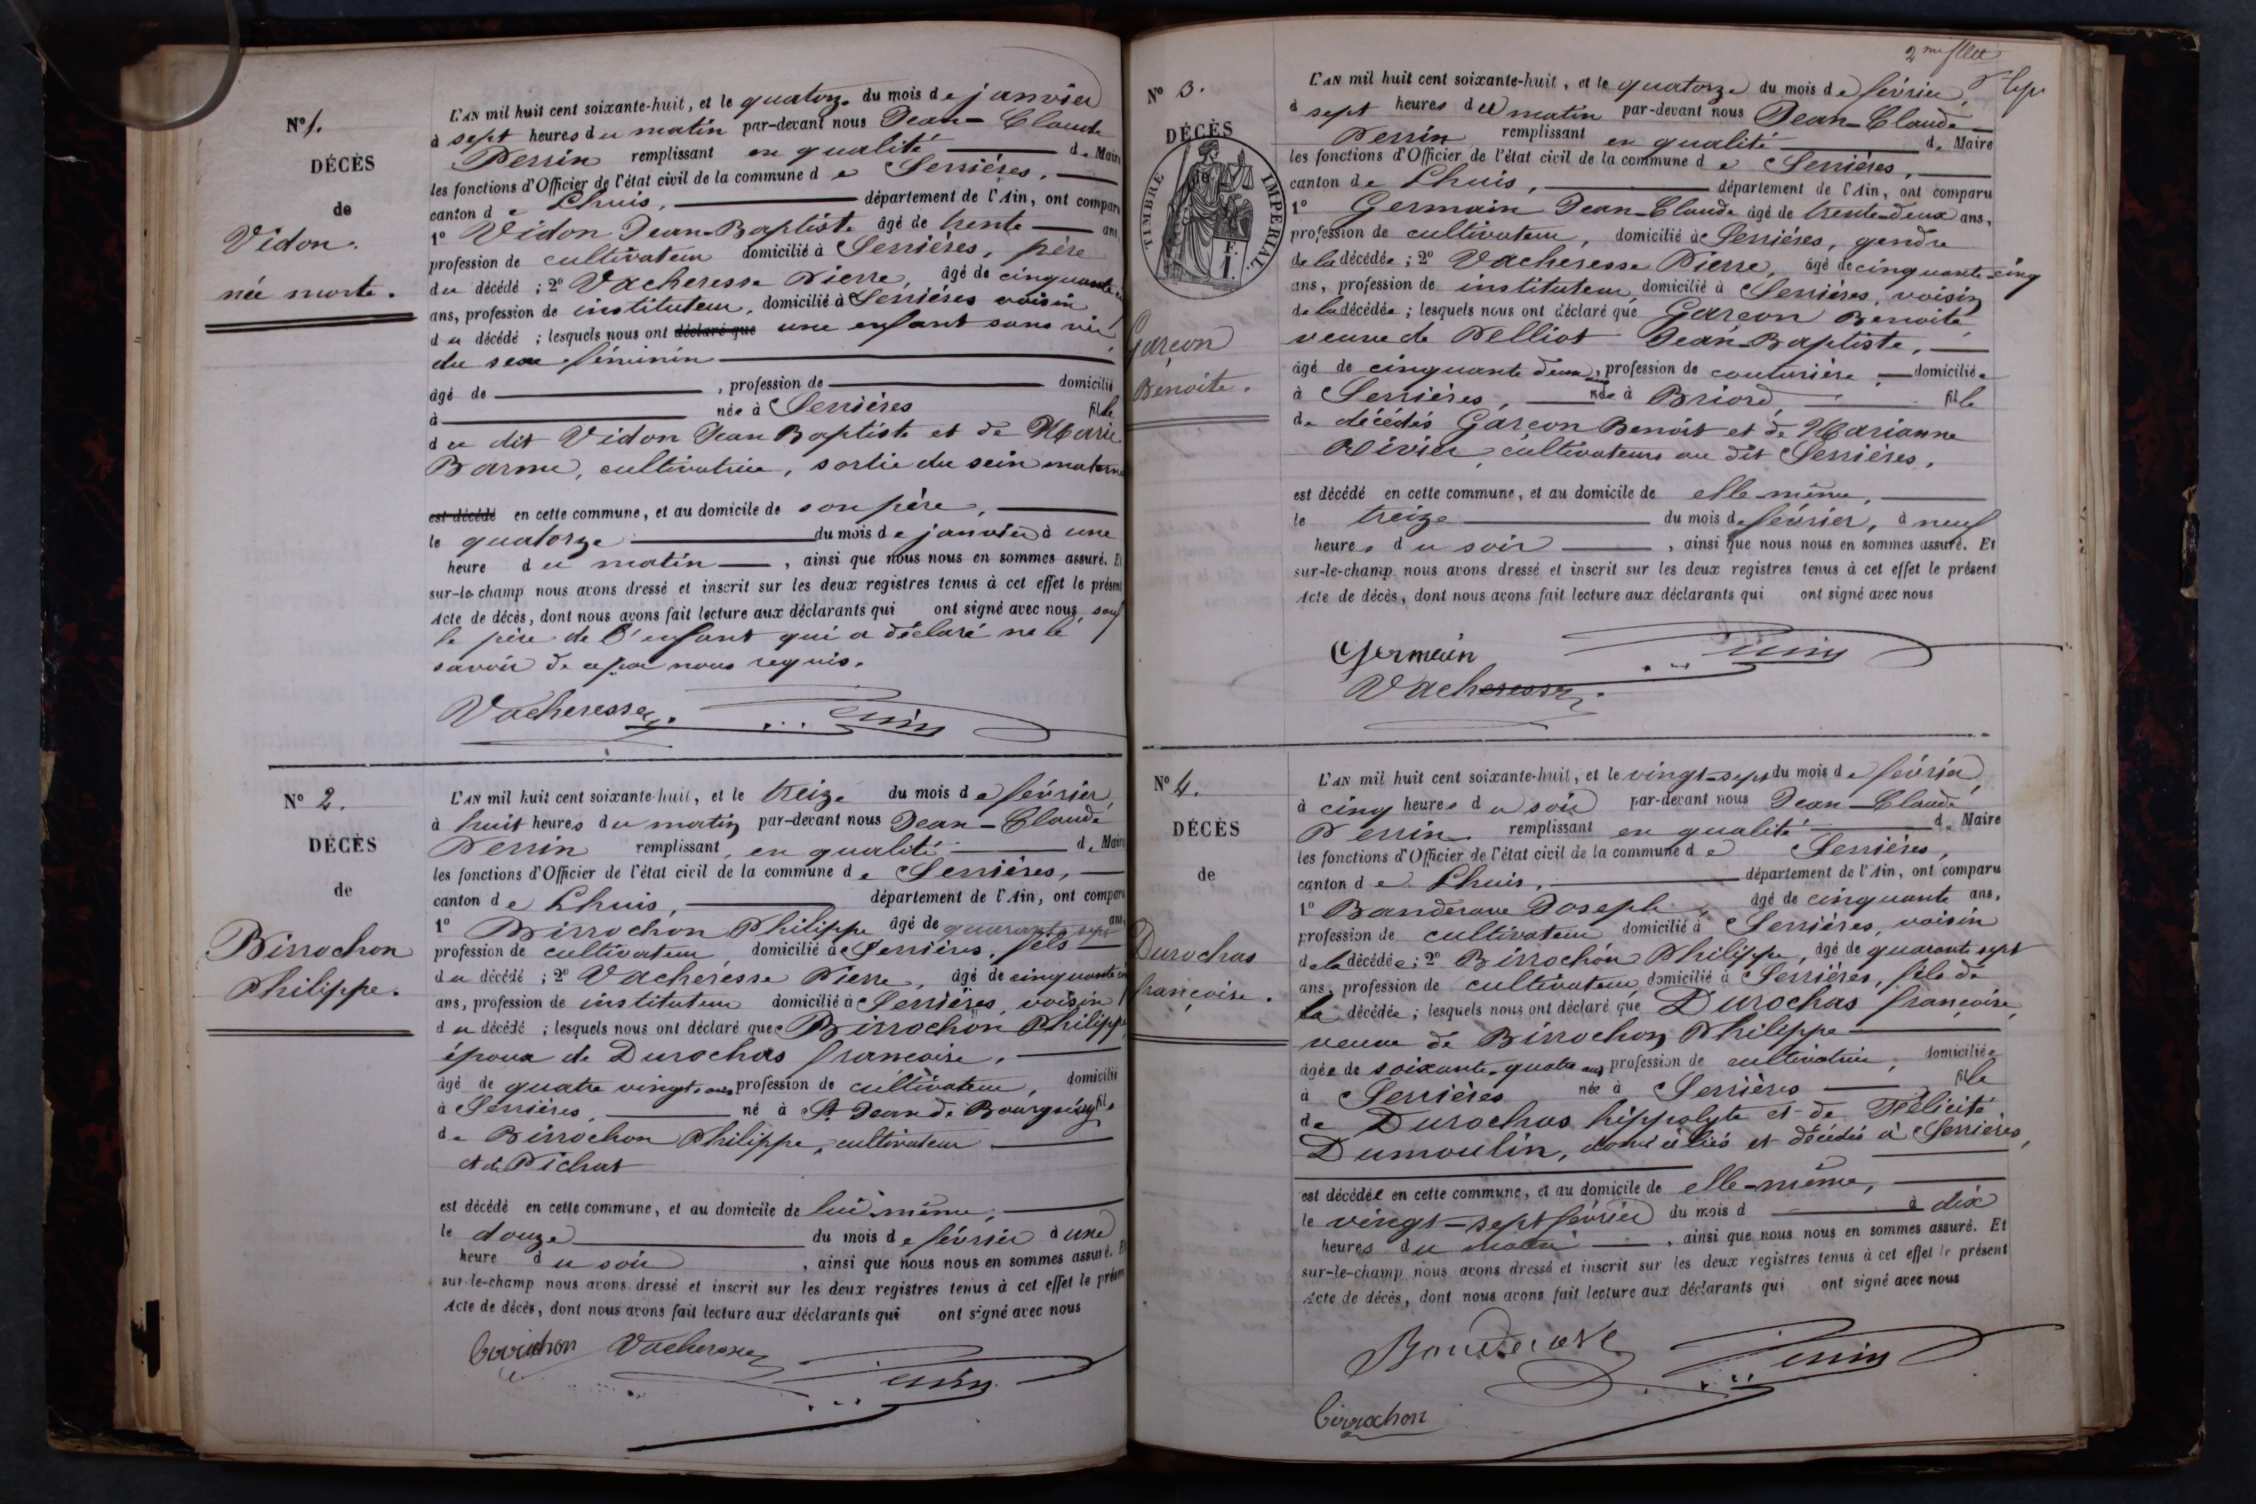 N° 1.
DÉCÈS
de
Vidon.
née morte.
L'AN mil huit cent soixante-huit, et le quatorze du mois de janvier
à sept heures du matin par-devant nous Jean-Claude
Perrin remplissant en qualité de Maire
les fonctions d'Officier de l'état civil de la commune de Serrières,
canton de Lhuis, département de l'Ain, ont comparu
1° Vidon Jean-Baptiste âgé de trente ans,
profession de cultivateur domicilié à Serrières, père
du décédé ; 2° Vacheresse Pierre, âgé de cinquante
ans, profession de instituteur, domicilié à Serrières voisin
du décédé ; lesquels nous ont déclaré que une enfant sans vie
du sexe féminin
âgé de , profession de domicilié
à née à Serrières fille
du dit Vidon Jean Baptiste et de Marie
Barme, cultivatrice, sortie du sein maternel
est décédé en cette commune, et au domicile de son père,
le quatorze du mois de janvier à une
heure du matin , ainsi que nous nous en sommes assuré. Et
sur-le-champ nous avons dressé et inscrit sur les deux registres tenus à cet effet le présent
Acte de décès, dont nous avons fait lecture aux déclarants qui ont signé avec nous, sauf
le père de l'enfant qui a déclaré ne le
savoir de ce par nous requis.
Vacheresse Perrin
N° 2.
DÉCÈS
de
Birrochon
Philippe.
L'AN mil huit cent soixante-huit, et le treize du mois de février,
à huit heures du matin par-devant nous Jean-Claude
Perrin remplissant en qualité de Maire
les fonctions d'Officier de l'état civil de la commune de Serrières,
canton de Lhuis, département de l'Ain, ont comparu
1° Birrochon Philippe âgé de quarante sept ans,
profession de cultivateur domicilié à Serrières, fils
du décédé ; 2° Vacheresse Pierre, âgé de cinquante cinq
ans, profession de instituteur domicilié à Serrières, voisin
du décédé ; lesquels nous ont déclaré que Birrochon Philippe
époux de Durochas françoise,
âgé de quatre vingts ans profession de cultivateur, domicilié
à Serrières, né à St Jean de Bournay fils
de Birrochon Philippe, cultivateur
et de Pichat
est décédé en cette commune, et au domicile de lui-même,
le douze du mois de février à une
heure du soir , ainsi que nous nous en sommes assuré. Et
sur-le-champ nous avons dressé et inscrit sur les deux registres tenus à cet effet le présent
Acte de décès, dont nous avons fait lecture aux déclarants qui ont signé avec nous
Birrochon Vacheresse Perrin
2me
N° 3.
DÉCÈS
TIMBRE IMPÉRIAL.
Garçon
Benoite.
L'AN mil huit cent soixante-huit, et le quatorze du mois de février,
à sept heures du matin par-devant nous Jean-Claude
Perrin remplissant en qualité de Maire
les fonctions d'Officier de l'état civil de la commune de Serrières,
canton de Lhuis, département de l'Ain, ont comparu
1° Germain Jean-Claude âgé de trente-deux ans,
profession de cultivateur, domicilié à Serrières, gendre
de la décédée ; 2° Vacheresse Pierre, âgé de cinquante-cinq
ans, profession de instituteur domicilié à Serrières, voisin
de la décédée ; lesquels nous ont déclaré que Garçon Benoite
veuve de Pelliot Jean-Baptiste,
âgé de cinquante deux ans, profession de couturière, domiciliée
à Serrières, née à Briord fille
de décédés Garçon Benoit et de Marianne
Olivier, cultivateurs au dit Serrières,
est décédé en cette commune, et au domicile de elle-même,
le treize du mois de février, à neuf
heures du soir , ainsi que nous nous en sommes assuré. Et
sur-le-champ nous avons dressé et inscrit sur les deux registres tenus à cet effet le présent
Acte de décès, dont nous avons fait lecture aux déclarants qui ont signé avec nous
Germain Perrin
Vacheresse
N° 4.
DÉCÈS
de
Durochas
françoise.
L'AN mil huit cent soixante-huit, et le vingt-sept du mois de février,
à cinq heures du soir par-devant nous Jean-Claude
Perrin remplissant en qualité de Maire
les fonctions d'Officier de l'état civil de la commune de Serrières,
canton de Lhuis, département de l'Ain, ont comparu
1° Banderave Joseph, âgé de cinquante ans,
profession de cultivateur domicilié à Serrières, voisin
de la décédée ; 2° Birrochon Philippe, âgé de quarante sept
ans, profession de cultivateur, domicilié à Serrières, fils de
la décédée ; lesquels nous ont déclaré que Durochas françoise,
veuve de Birrochon Philippe
âgée de soixante-quatre ans profession de cultivatrice, domiciliée
à Serrières née à Serrières fille
de Durochas hippolyte et de Félicité
Dumoulin, domiciliés et décédés à Serrières,
est décédée en cette commune, et au domicile de elle-même,
le vingt-sept février du mois d à dix
heures du matin , ainsi que nous nous en sommes assuré. Et
sur-le-champ nous avons dressé et inscrit sur les deux registres tenus à cet effet le présent
Acte de décès, dont nous avons fait lecture aux déclarants qui ont signé avec nous
Perrin
Birrochon